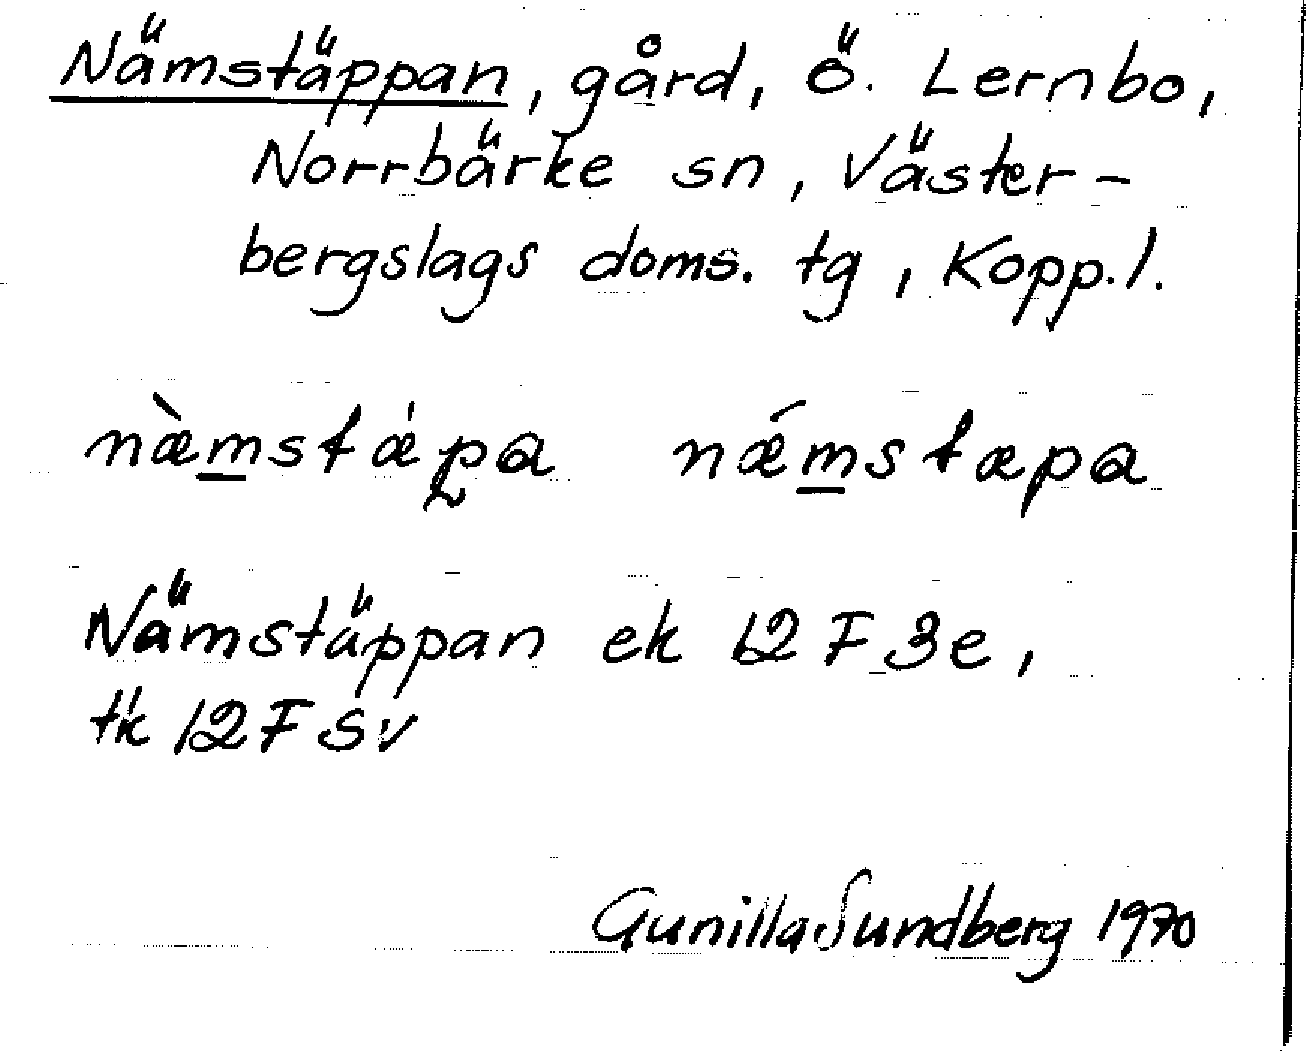 Nämstäppan, gård, Ö. Lernbo,
Norrbärke sn, Väster-
bergslags doms. tg, Kopp. l.
næ̀m̲stæ̍pa nǽm̲stæpa
Nämstäppan ek 12 F 3e,
tk 12 F SV
Gunilla Sundberg 1970